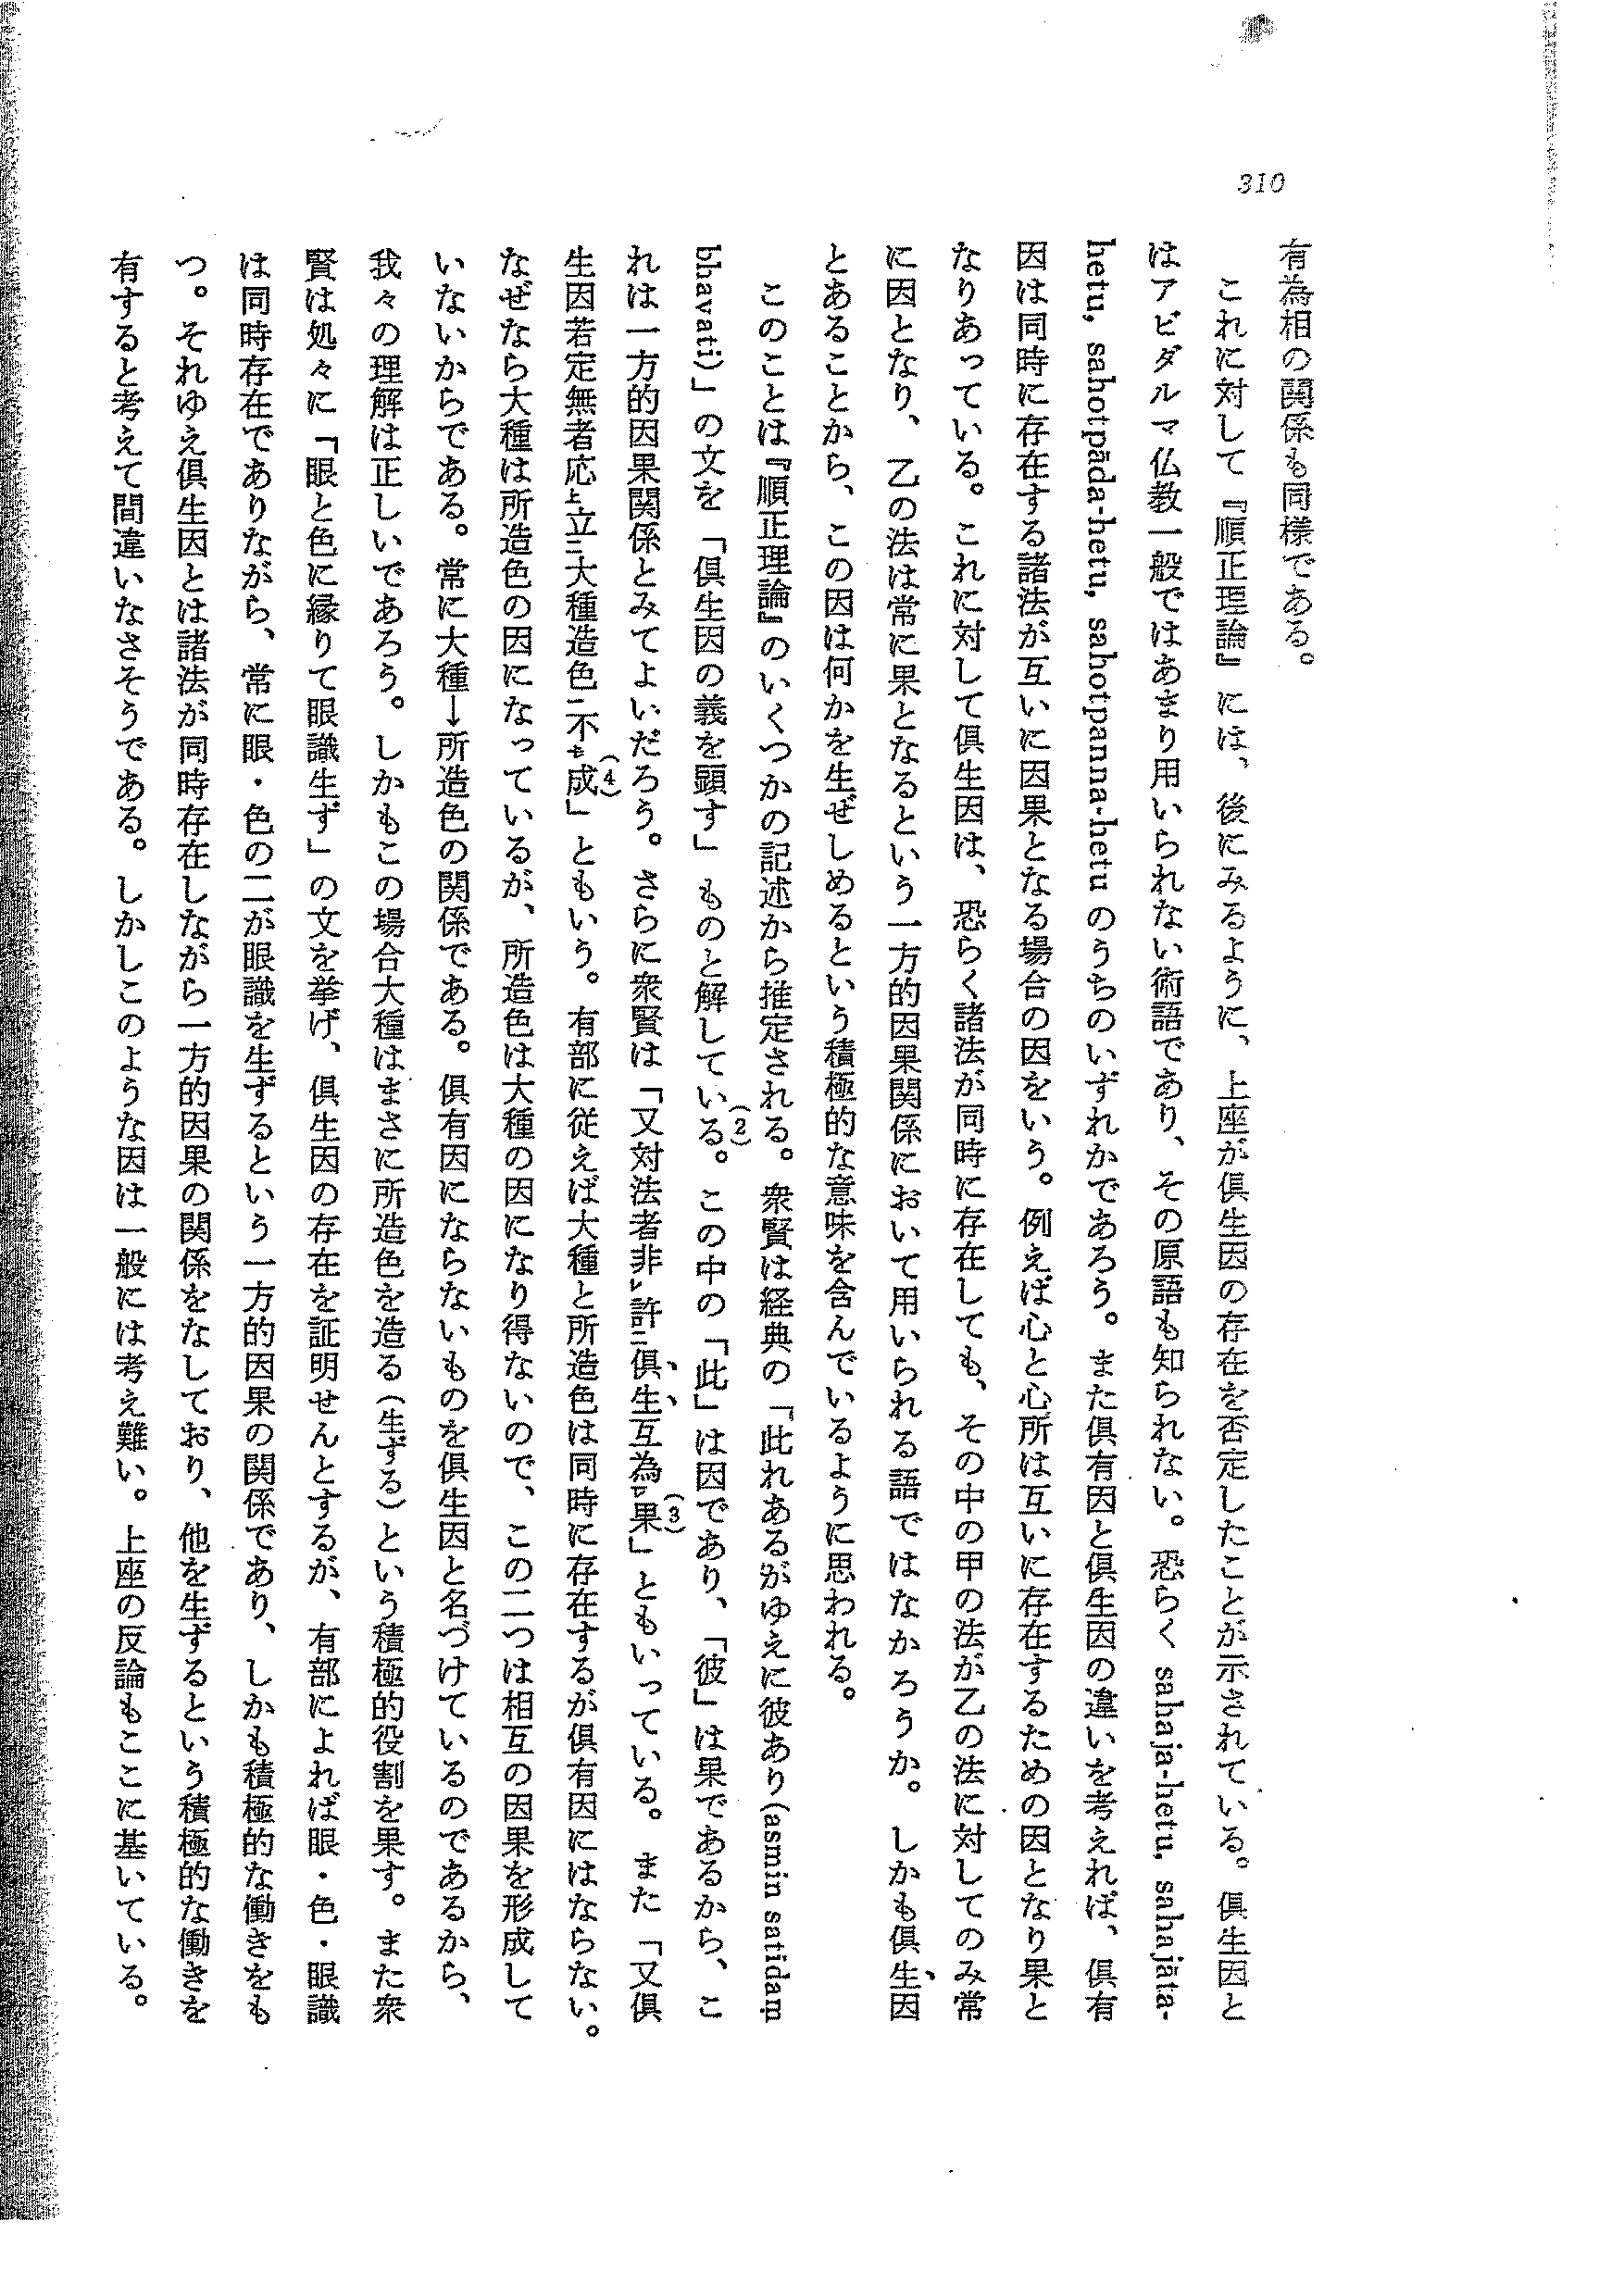 310
有為相の関係も同様である。
これに対して『順正理論』には、後にみるように、上座が俱生因の存在を否定したことが示されている。俱生因と
はアビダルマ仏教一般ではあまり用いられない術語であり、その原語も知られない。恐らく sahaja-hetu, sahajāta-
hetu, sahotpāda-hetu, sahotpanna-hetu のうちのいずれかであろう。また俱有因と俱生因の違いを考えれば、俱有
因は同時に存在する諸法が互いに因果となる場合の因をいう。例えば心と心所は互いに存在するための因となり果と
なりあっている。これに対して俱生因は、恐らく諸法が同時に存在しても、その中の甲の法が乙の法に対してのみ常
に因となり、乙の法は常に果となるという一方的因果関係において用いられる語ではなかろうか。しかも俱生因
とあることから、この因は何かを生ぜしめるという積極的な意味を含んでいるように思われる。
このことは『順正理論』のいくつかの記述から推定される。衆賢は経典の「此れあるがゆえに彼あり(asmin satidaṃ
bhavati)」の文を「俱生因の義を顕す」ものと解している(2)。この中の「此」は因であり、「彼」は果であるから、こ
れは一方的因果関係とみてよいだろう。さらに衆賢は「又対法者非レ許二俱生互為レ果(3)」ともいっている。また「又俱
生因若定無者応上立二大種造色一不も成(4)」ともいう。有部に従えば大種と所造色は同時に存在するが俱有因にはならない。
なぜなら大種は所造色の因になっているが、所造色は大種の因になり得ないので、この二つは相互の因果を形成して
いないからである。常に大種→所造色の関係である。俱有因にならないものを俱生因と名づけているのであるから、
我々の理解は正しいであろう。しかもこの場合大種はまさに所造色を造る(生ずる)という積極的役割を果す。また衆
賢は処々に「眼と色に縁りて眼識生ず」の文を挙げ、俱生因の存在を証明せんとするが、有部によれば眼・色・眼識
は同時存在でありながら、常に眼・色の二が眼識を生ずるという一方的因果の関係であり、しかも積極的な働きをも
つ。それゆえ俱生因とは諸法が同時存在しながら一方的因果の関係をなしており、他を生ずるという積極的な働きを
有すると考えて間違いなさそうである。しかしこのような因は一般には考え難い。上座の反論もここに基いている。